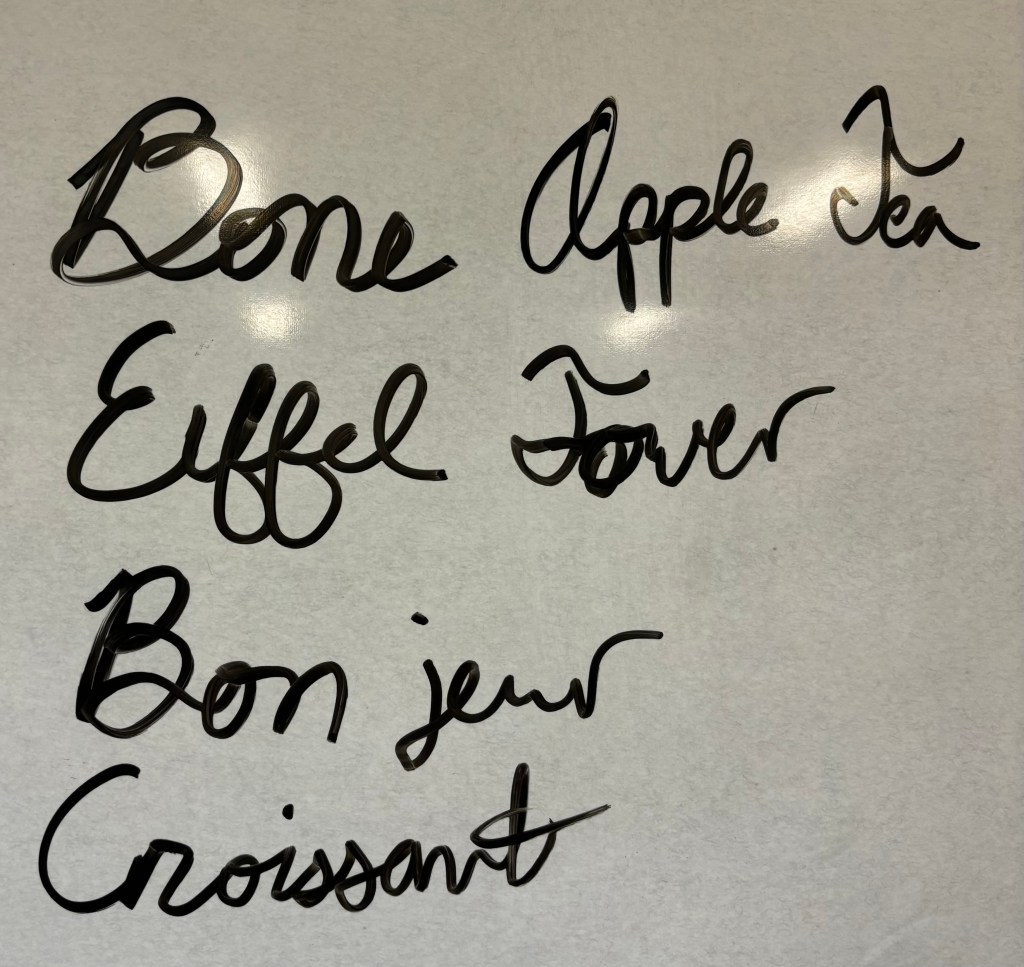 Bone Apple Tea
Eiffel Tower
Bon jeur
Croissant